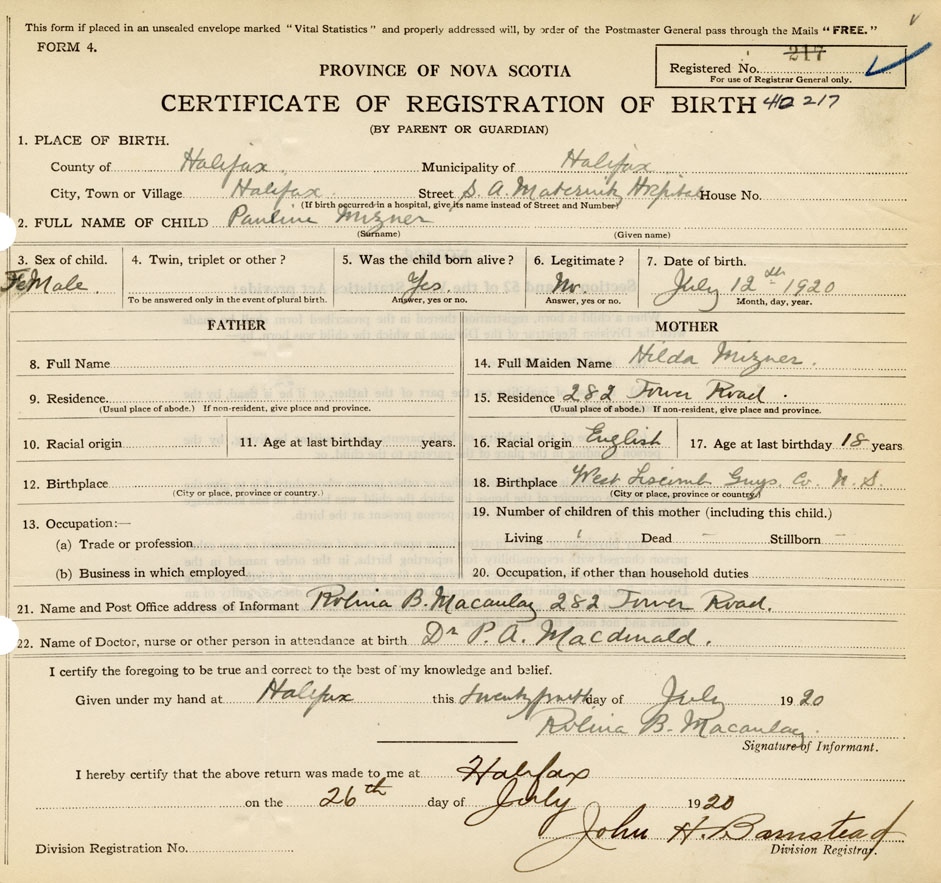 This form if placed in an unsealed envelope marked "Vital Statistics" and properly addressed will, by order of the Postmaster General pass through the Mails "FREE."
FORM 4.
217
Registered No.
For use of Registrar General only.
PROVINCE OF NOVA SCOTIA
CERTIFICATE OF REGISTRATION OF BIRTH 217
(BY PARENT OR GUARDIAN)
1. PLACE OF BIRTH.
County of Halifax Municipality of Halifax
City, Town or Village Halifax Street S. A. Maternity Hospital House No.
(If birth occurred in a hospital, give its name instead of Street and Number)
2. FULL NAME OF CHILD Pauline Mizner
(Surname) (Given name)
3. Sex of child. 4. Twin, triplet or other ? 5. Was the child born alive ? 6. Legitimate ? 7. Date of birth.
FeMale Yes. No. July 12th 1920
To be answered only in the event of plural birth. Answer, yes or no. Answer, yes or no. Month, day, year.
FATHER MOTHER
8. Full Name 14. Full Maiden Name Hilda Mizner.
9. Residence. 15. Residence 282 Tower Road.
(Usual place of abode.) If non-resident, give place and province. (Usual place of abode.) If non-resident, give place and province.
10. Racial origin 11. Age at last birthday years. 16. Racial origin English 17. Age at last birthday 18 years
12. Birthplace 18. Birthplace West Liscomb Guys. Co. N. S.
(City or place, province or country.) (City or place, province or country.)
13. Occupation:— 19. Number of children of this mother (including this child.)
(a) Trade or profession Living 1 Dead – Stillborn –
(b) Business in which employed 20. Occupation, if other than household duties
21. Name and Post Office address of Informant Rolina B. Macaulay 282 Tower Road.
22. Name of Doctor, nurse or other person in attendance at birth Dr P. A. Macdonald.
I certify the foregoing to be true and correct to the best of my knowledge and belief.
Given under my hand at Halifax this day of July 1920
Rolina B. Macaulay.
Signature of Informant.
I hereby certify that the above return was made to me at Halifax
on the 26th day of July 1920
John H. Barnstead
Division Registration No. Division Registrar.